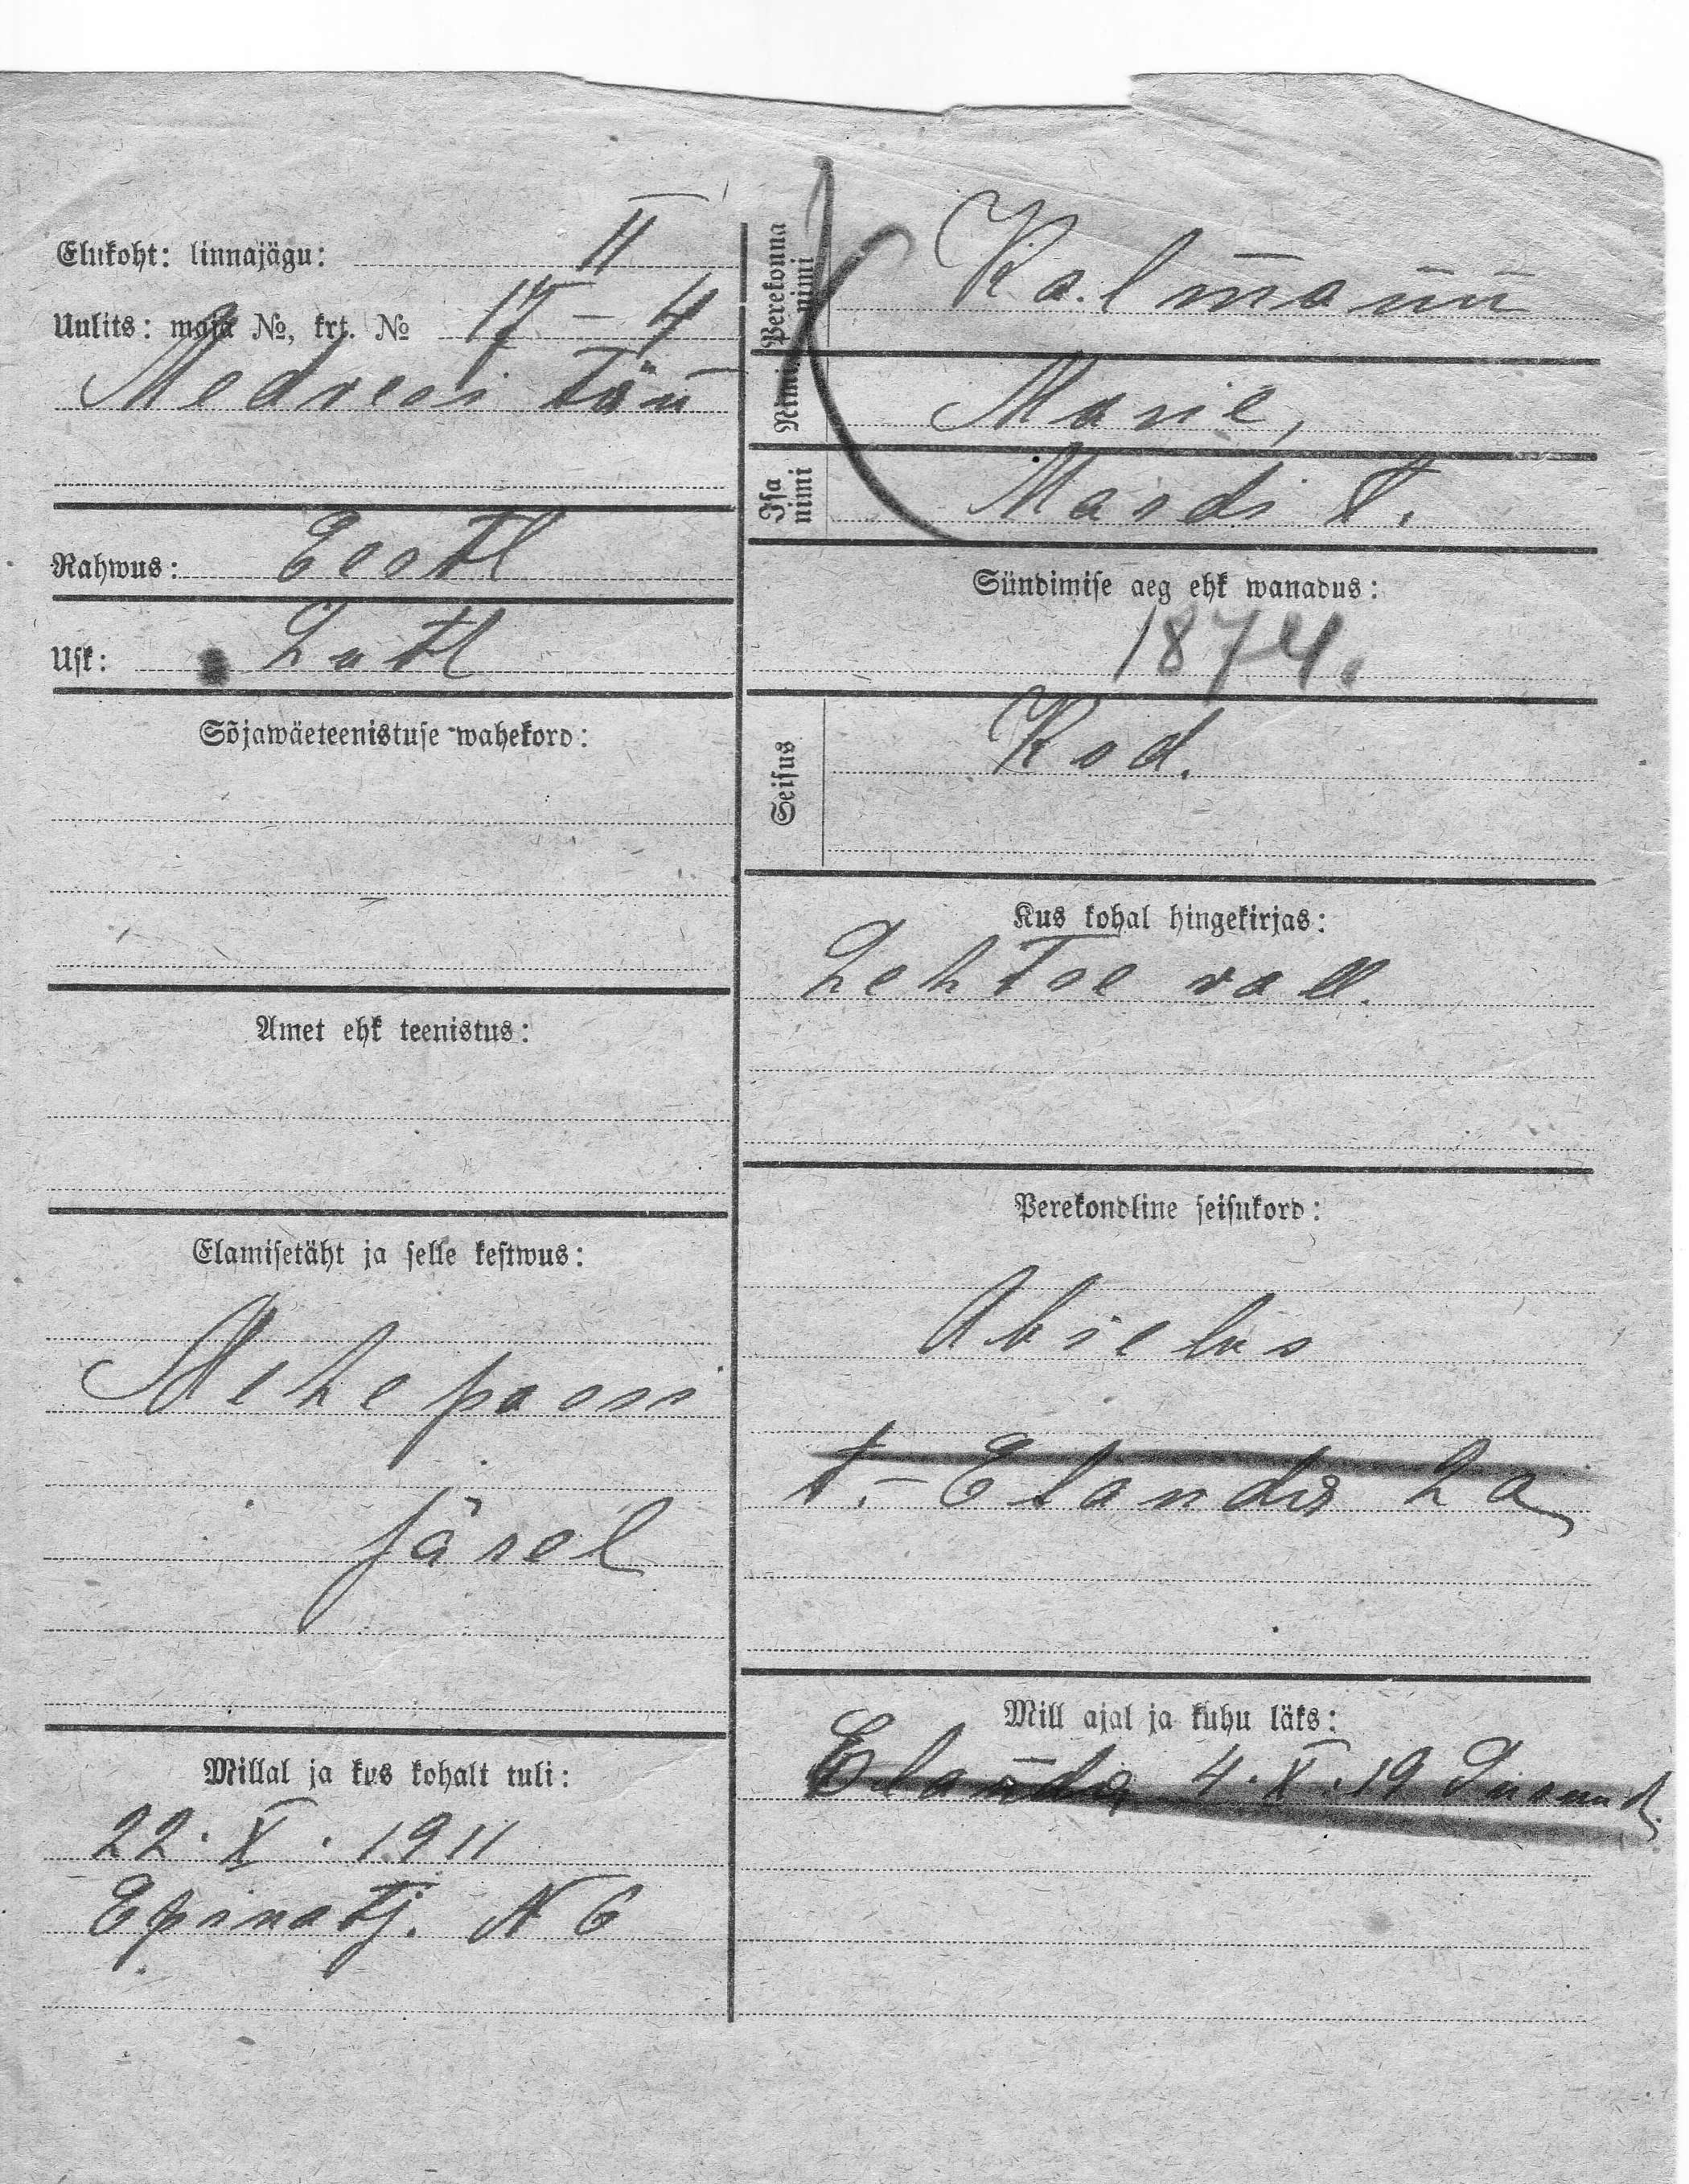 Elukoht: linnajägu: II
Uulits: maja №, krt. № 17 – 4
Rahwus: Eestl
Usk: Lutl
Sõjawäeteenistuse wahekord:
Amet ehk teenistus:
Elamisetäht ja selle kestwus:
Mehe passi
järel
Millal ja kus kohalt tuli:
22. X. 1911
N 6
Perekonna nimi
Kalmann
Nimi
Marie,
Isa nimi
Mardi t.
Sündimise aeg ehk wanadus:
1874.
Seisus
Kod.
Kus kohal hingekirjas:
Lehtse vall.
Perekondline seisukord:
Abielus
Mill ajal ja kuhu läks:
4. X. 19